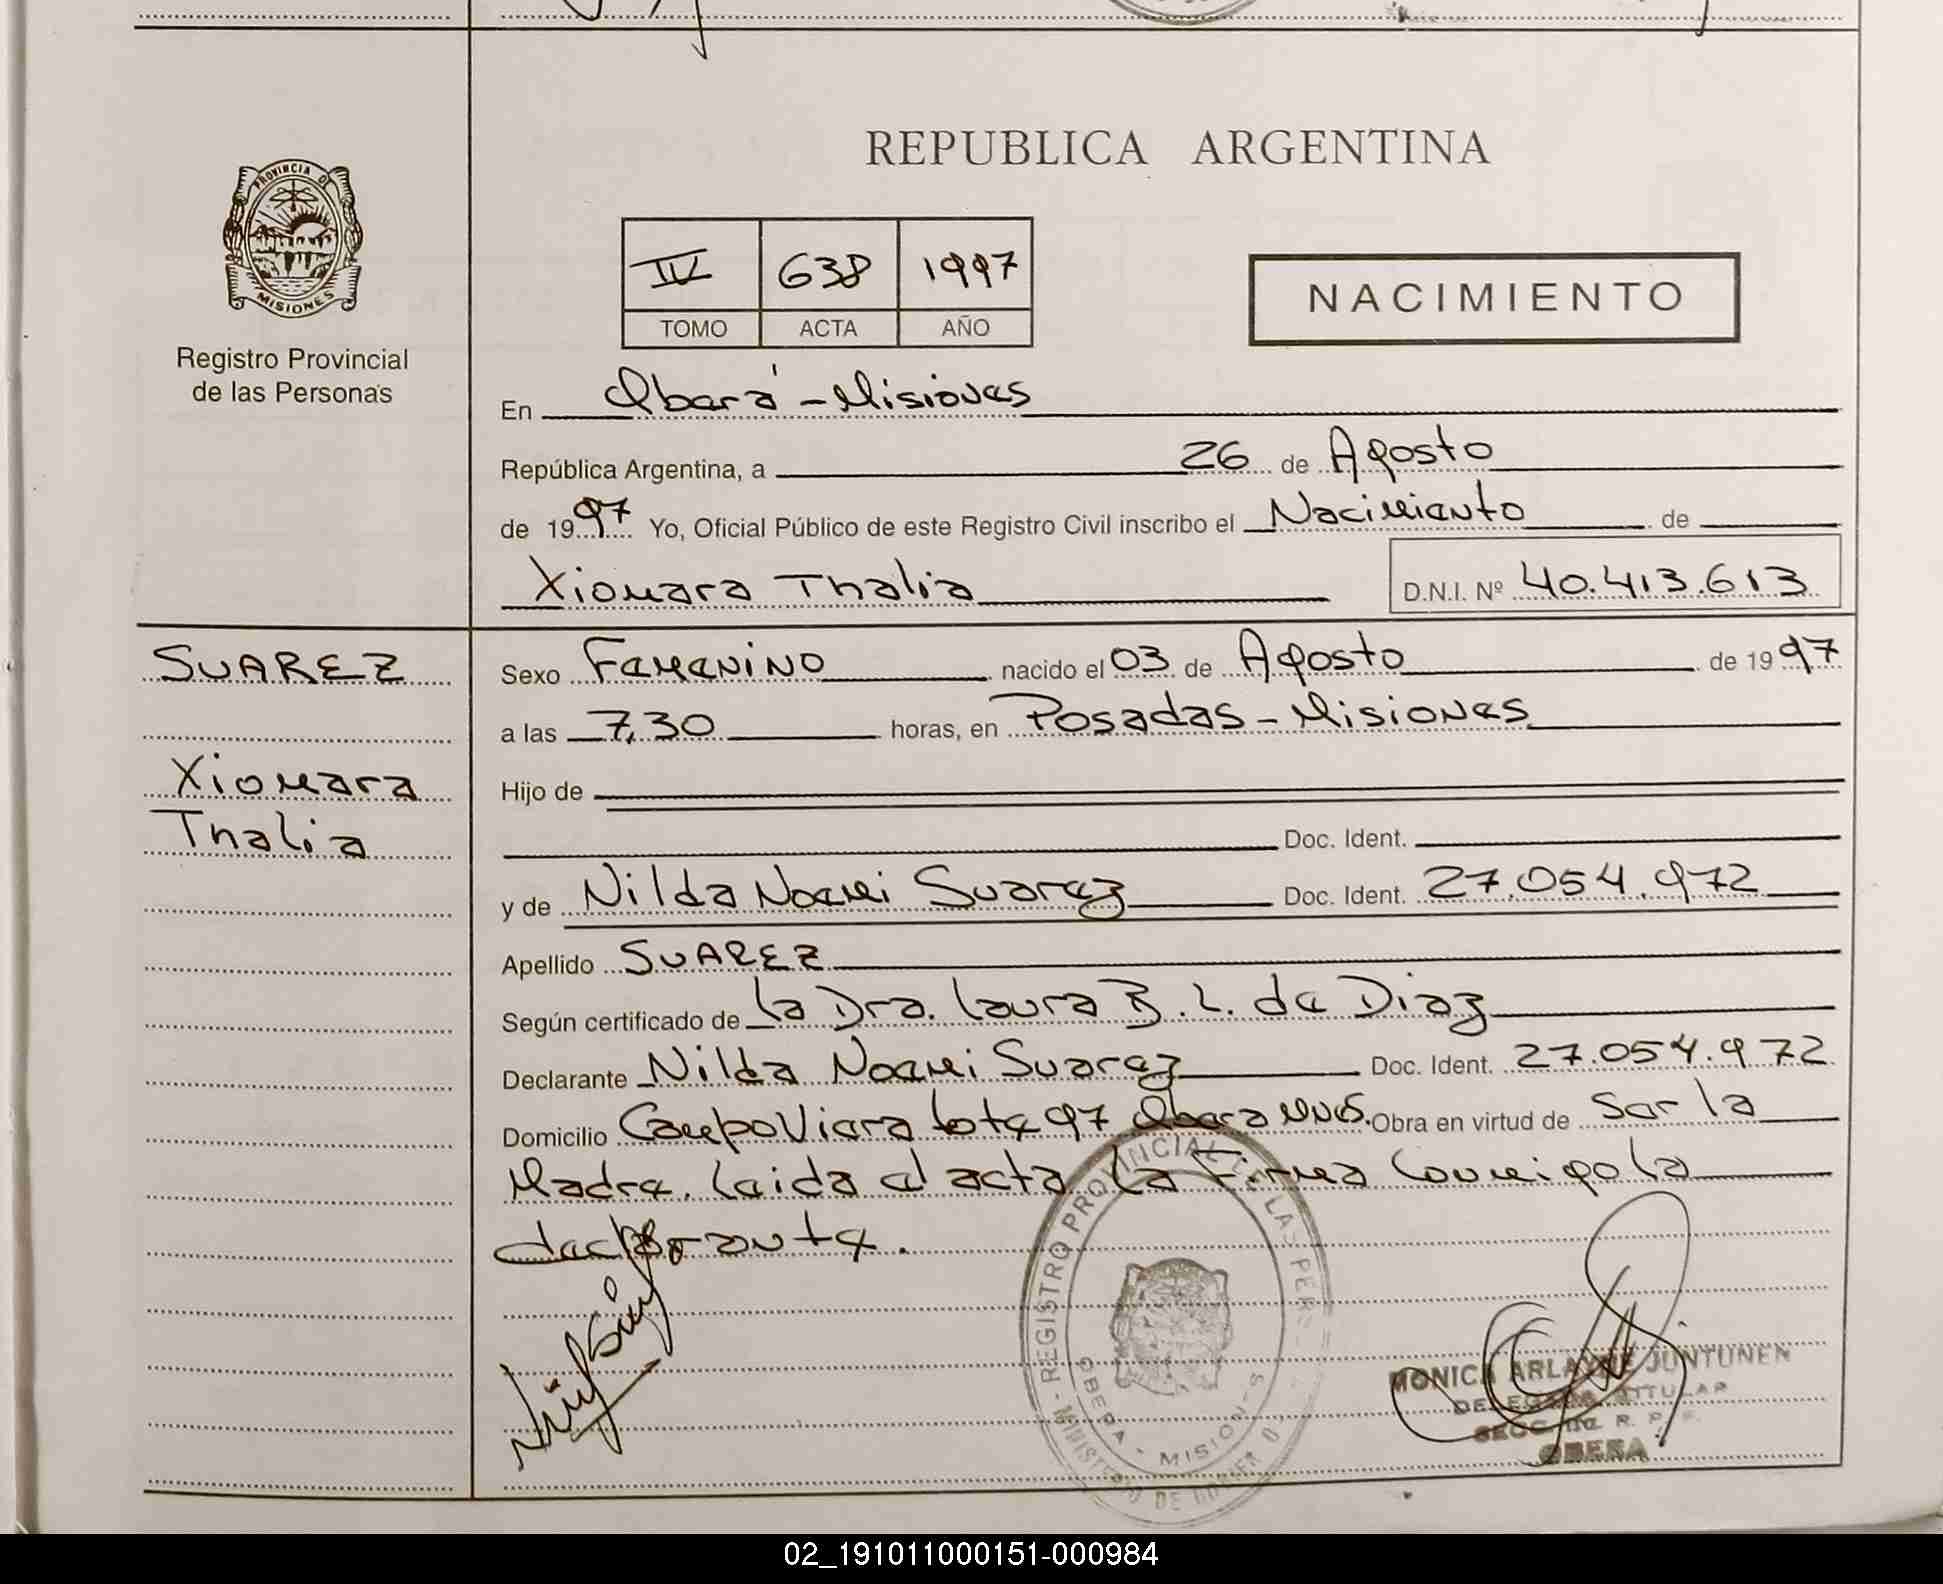 PROVINCIA DE
MISIONES
Registro Provincial
de las Personas
REPUBLICA ARGENTINA
IV 638 1997
TOMO ACTA AÑO
NACIMIENTO
En Oberá - Misiones
República Argentina, a 26 de Agosto
de 1997 Yo, Oficial Público de este Registro Civil inscribo el Nacimiento de
Xiomara Thalia D.N.I. Nº 40.413.613
SUAREZ
Xiomara
Thalia
Sexo Femenino nacido el 03 de Agosto de 1997
a las 7,30 horas, en Posadas - Misiones
Hijo de
Doc. Ident.
y de Nilda Noemi Suarez Doc. Ident. 27.054.972
Apellido SUAREZ
Según certificado de la Dra. Laura B. L. de Diaz
Declarante Nilda Noemi Suarez Doc. Ident. 27.054.972
Domicilio Campo Viera lote 97 Obera Mnes. Obra en virtud de Ser la
Madre. Leida el acta la Firma Conmigo la
declarante.
REGISTRO PROVINCIAL DE LAS PERS
OBERA - MISION-S
MINISTERIO DE GOBIER O
MONICA ARLAYNE JUNTUNEN
DELEGADA TITULAR
SECC. R. P.
OBERA
02_191011000151-000984